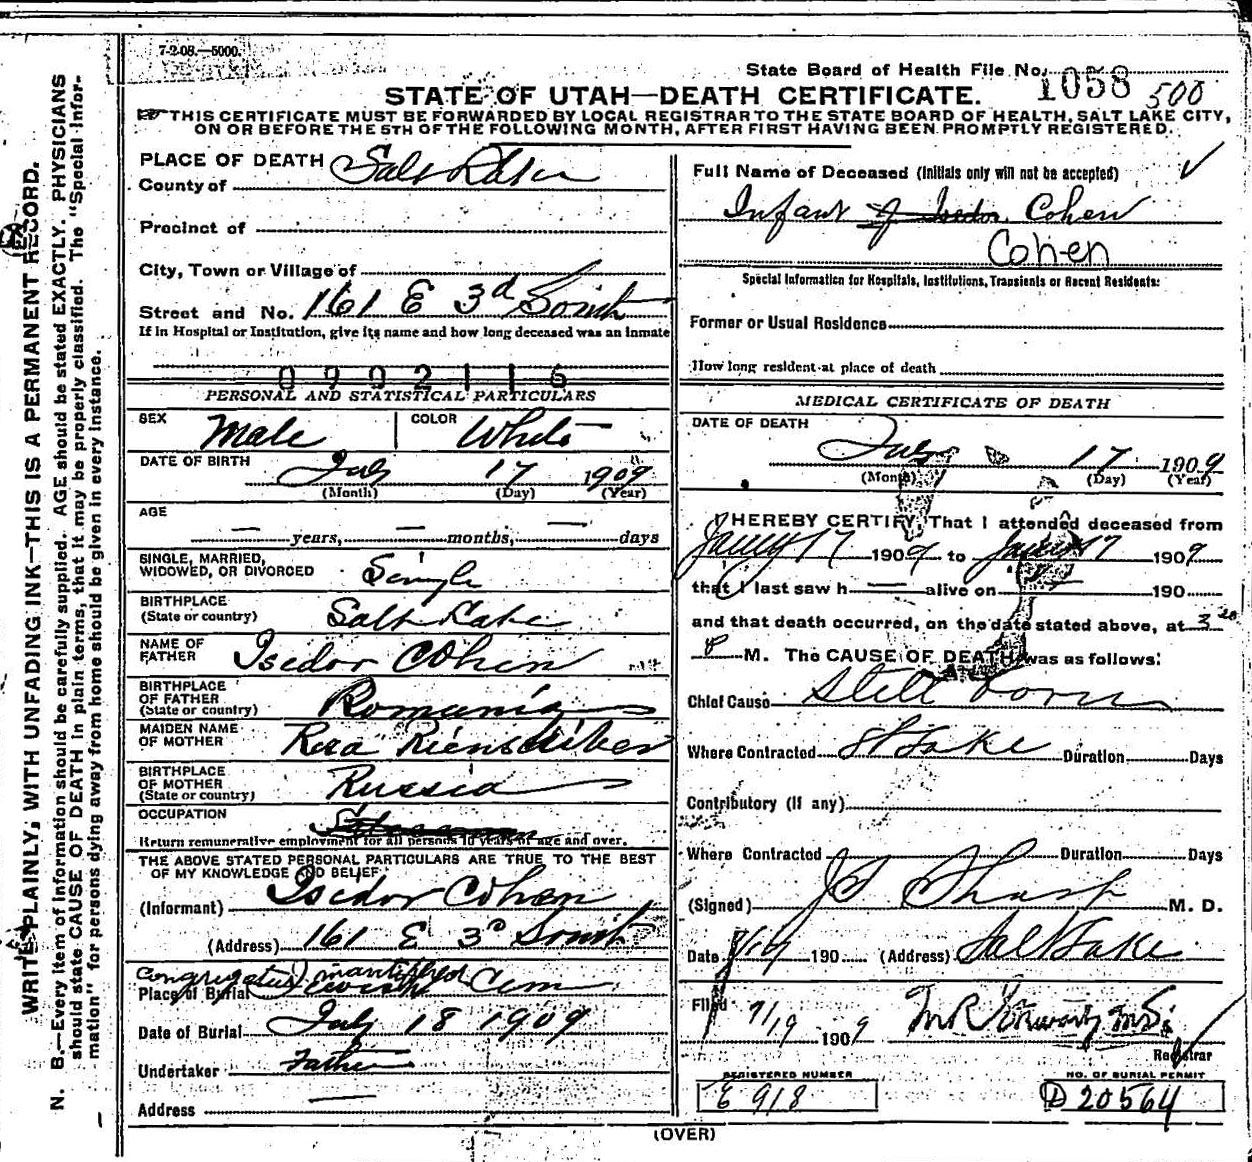 7-2-08.—5000.
State Board of Health File No. 1058 500
STATE OF UTAH—DEATH CERTIFICATE.
THIS CERTIFICATE MUST BE FORWARDED BY LOCAL REGISTRAR TO THE STATE BOARD OF HEALTH, SALT LAKE CITY,
ON OR BEFORE THE 5TH OF THE FOLLOWING MONTH, AFTER FIRST HAVING BEEN PROMPTLY REGISTERED.
WRITE PLAINLY, WITH UNFADING INK—THIS IS A PERMANENT RECORD.
N. B.—Every item of information should be carefully supplied. AGE should be stated EXACTLY. PHYSICIANS
should state CAUSE OF DEATH in plain terms, that it may be properly classified. The "Special Infor-
mation" for persons dying away from home should be given in every instance.
PLACE OF DEATH
County of Salt Lake
Precinct of
City, Town or Village of
Street and No. 161 E 3d South
If in Hospital or Institution, give its name and how long deceased was an inmate
0902116
PERSONAL AND STATISTICAL PARTICULARS
SEX Male COLOR White
DATE OF BIRTH July 17 1909
(Month) (Day) (Year)
AGE
— years, — months, — days
SINGLE, MARRIED,
WIDOWED, OR DIVORCED Single
BIRTHPLACE
(State or country) Salt Lake
NAME OF
FATHER Isedor Cohen
BIRTHPLACE
OF FATHER
(State or country) Romania
MAIDEN NAME
OF MOTHER Rosa
BIRTHPLACE
OF MOTHER
(State or country) Russia
OCCUPATION
Return remunerative employment for all persons 10 years of age and over.
THE ABOVE STATED PERSONAL PARTICULARS ARE TRUE TO THE BEST
OF MY KNOWLEDGE AND BELIEF
(Informant) Isedor Cohen
(Address) 161 E 3d South
Place of Burial Cem
Date of Burial July 18 1909
Undertaker Father
Address —
Full Name of Deceased (Initials only will not be accepted)
Infant of Isedor Cohen
Cohen
Special Information for Hospitals, Institutions, Transients or Recent Residents:
Former or Usual Residence
How long resident at place of death
MEDICAL CERTIFICATE OF DEATH
DATE OF DEATH
July 17 1909
(Month) (Day) (Year)
I HEREBY CERTIFY, That I attended deceased from
17 1909 to 17 1909
that I last saw h — alive on 190
and that death occurred, on the date stated above, at 3 20
P M. The CAUSE OF DEATH was as follows:
Chief Cause Still born
Where Contracted St Lake Duration Days
Contributory (if any)
Where Contracted Duration Days
(Signed) M. D.
Date 7/17 190 (Address) Salt Lake
Filed 7/19 1909
Registrar
REGISTERED NUMBER
E 918
NO. OF BURIAL PERMIT
D 20564
(OVER)